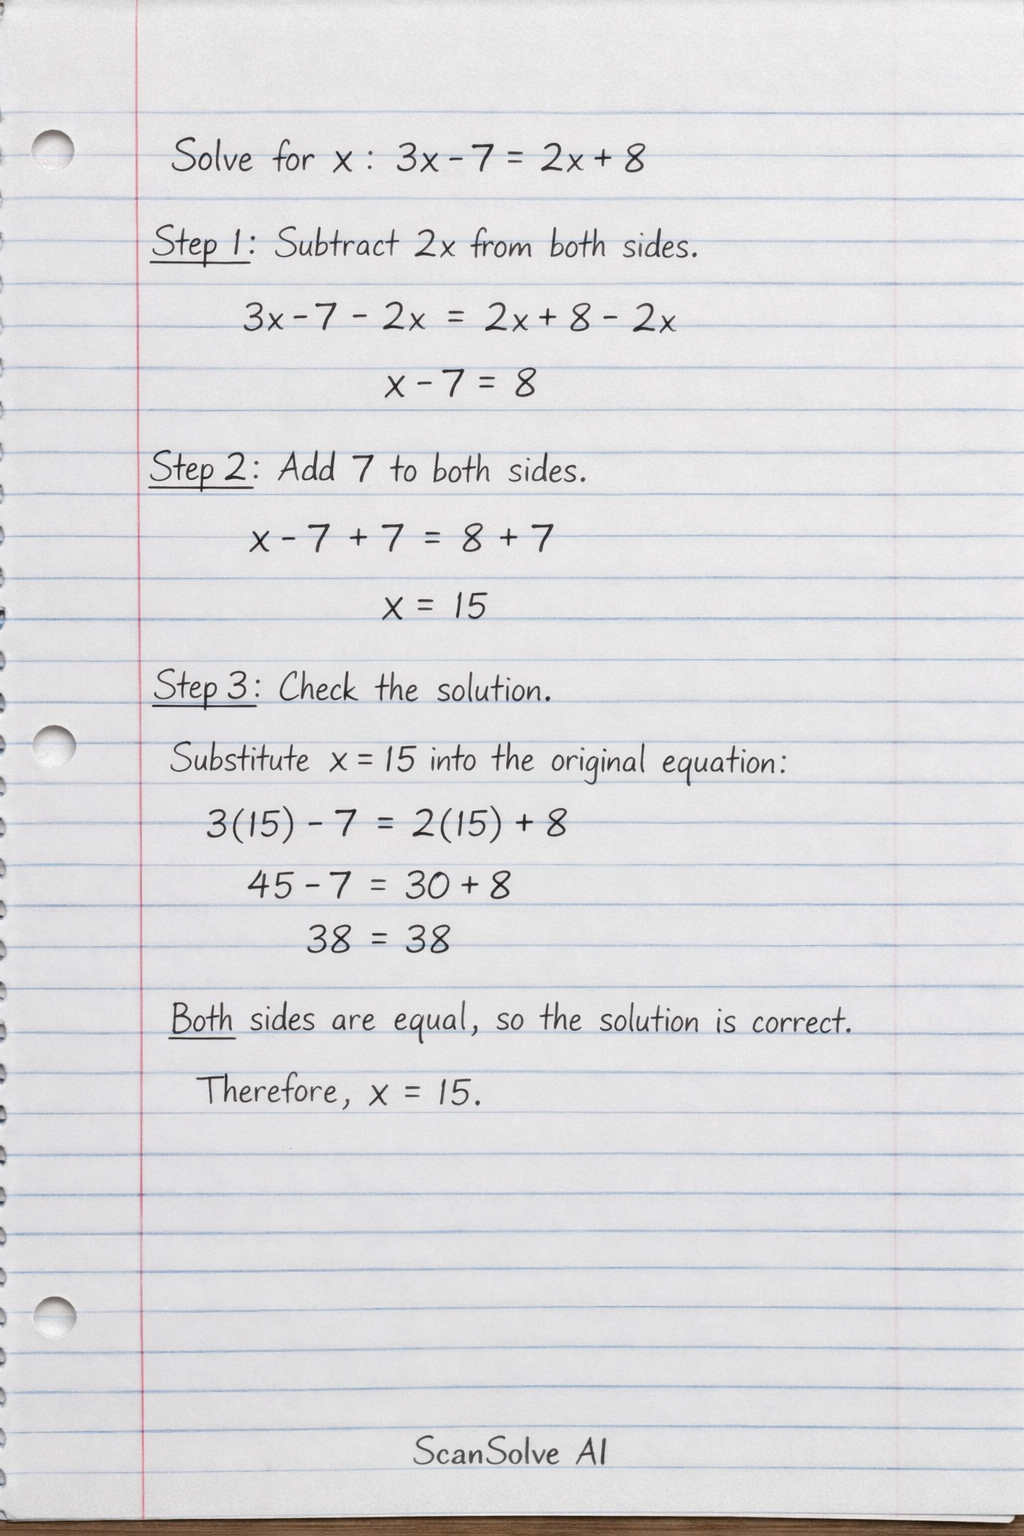 Solve for x : 3x - 7 = 2x + 8
Step 1: Subtract 2x from both sides.
3x - 7 - 2x = 2x + 8 - 2x
x - 7 = 8
Step 2: Add 7 to both sides.
x - 7 + 7 = 8 + 7
x = 15
Step 3: Check the solution.
Substitute x = 15 into the original equation:
3(15) - 7 = 2(15) + 8
45 - 7 = 30 + 8
38 = 38
Both sides are equal, so the solution is correct.
Therefore, x = 15.
ScanSolve AI